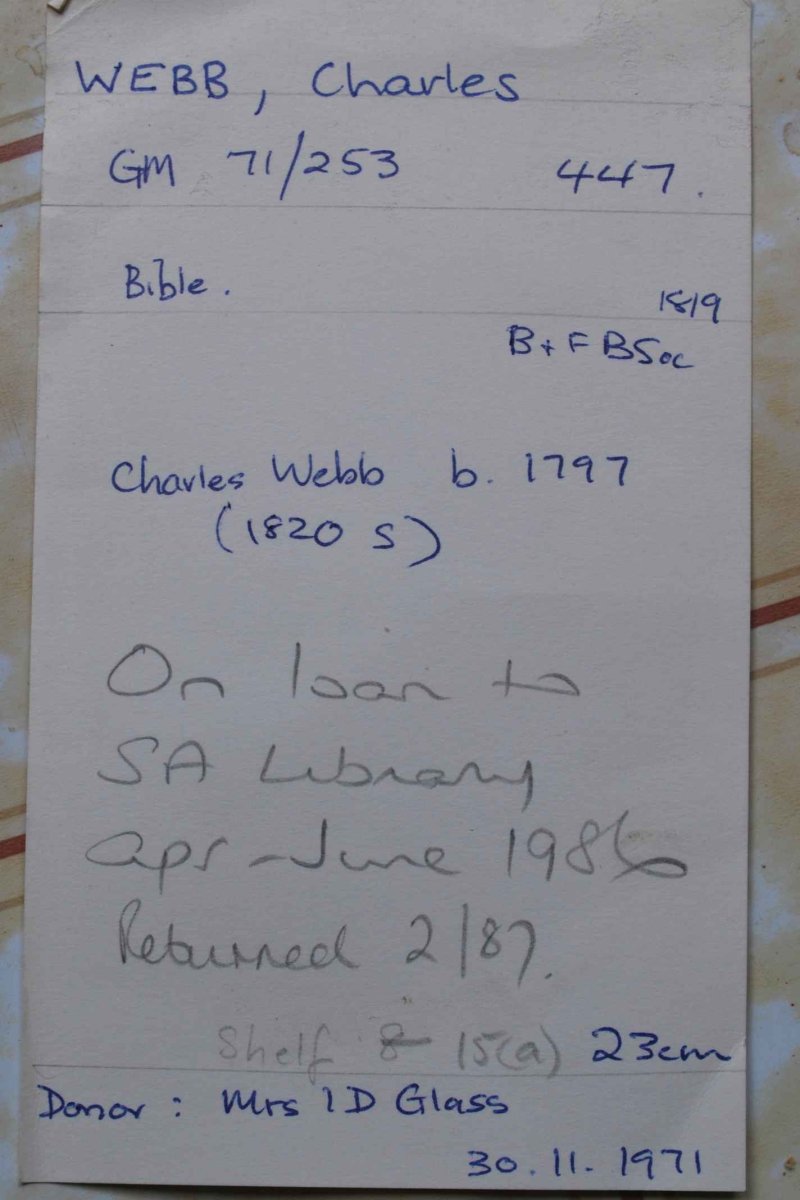 WEBB, Charles
GM 71/253 447.
Bible. 1819
B + F BSoc
Charles Webb b. 1797
(1820 s)
On loan to
SA Library
Apr - June 1986
Returned 2/87.
Shelf 8 15(a) 23cm
Donor : Mrs I D Glass
30.11.1971